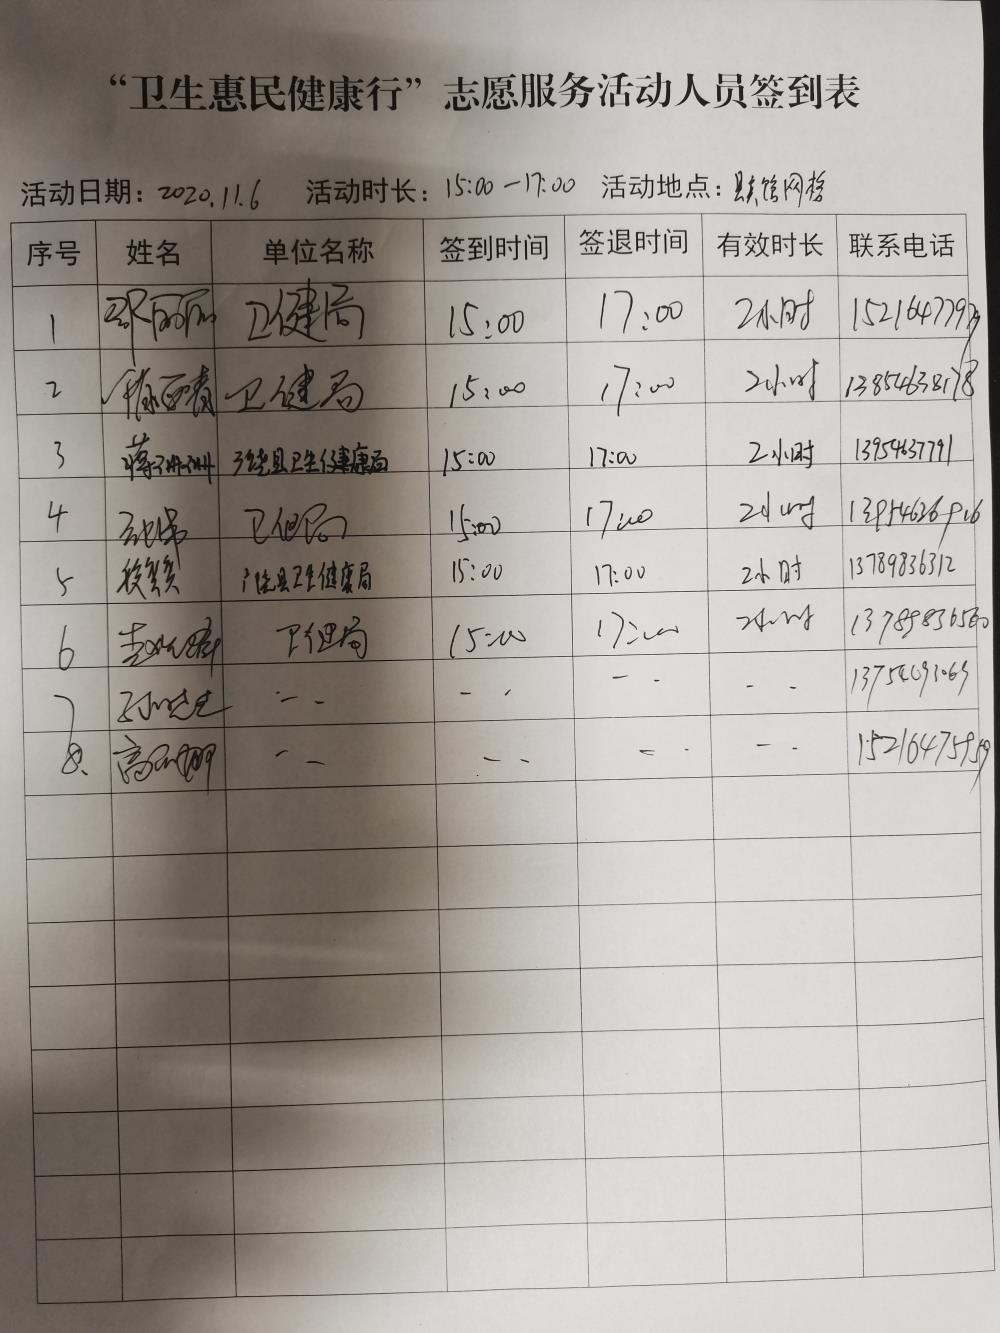 “卫生惠民健康行”志愿服务活动人员签到表
活动日期：2020.11.6 活动时长：15:00-17:00 活动地点：网格
序号 姓名 单位名称 签到时间 签退时间 有效时长 联系电话
1 卫健局 15:00 17:00 2小时
2 卫健局 15:00 17:00 2小时 13854638178
3 蒋珊珊 广饶县卫生健康局 15:00 17:00 2小时 13954637791
4 卫健局 15:00 17:00 2小时
5 广饶县卫生健康局 15:00 17:00 2小时 13789836312
6 卫健局 15:00 17:00 2小时 13789836560
7 - - - - - - - -
8. - - - - - - - - 15216475959